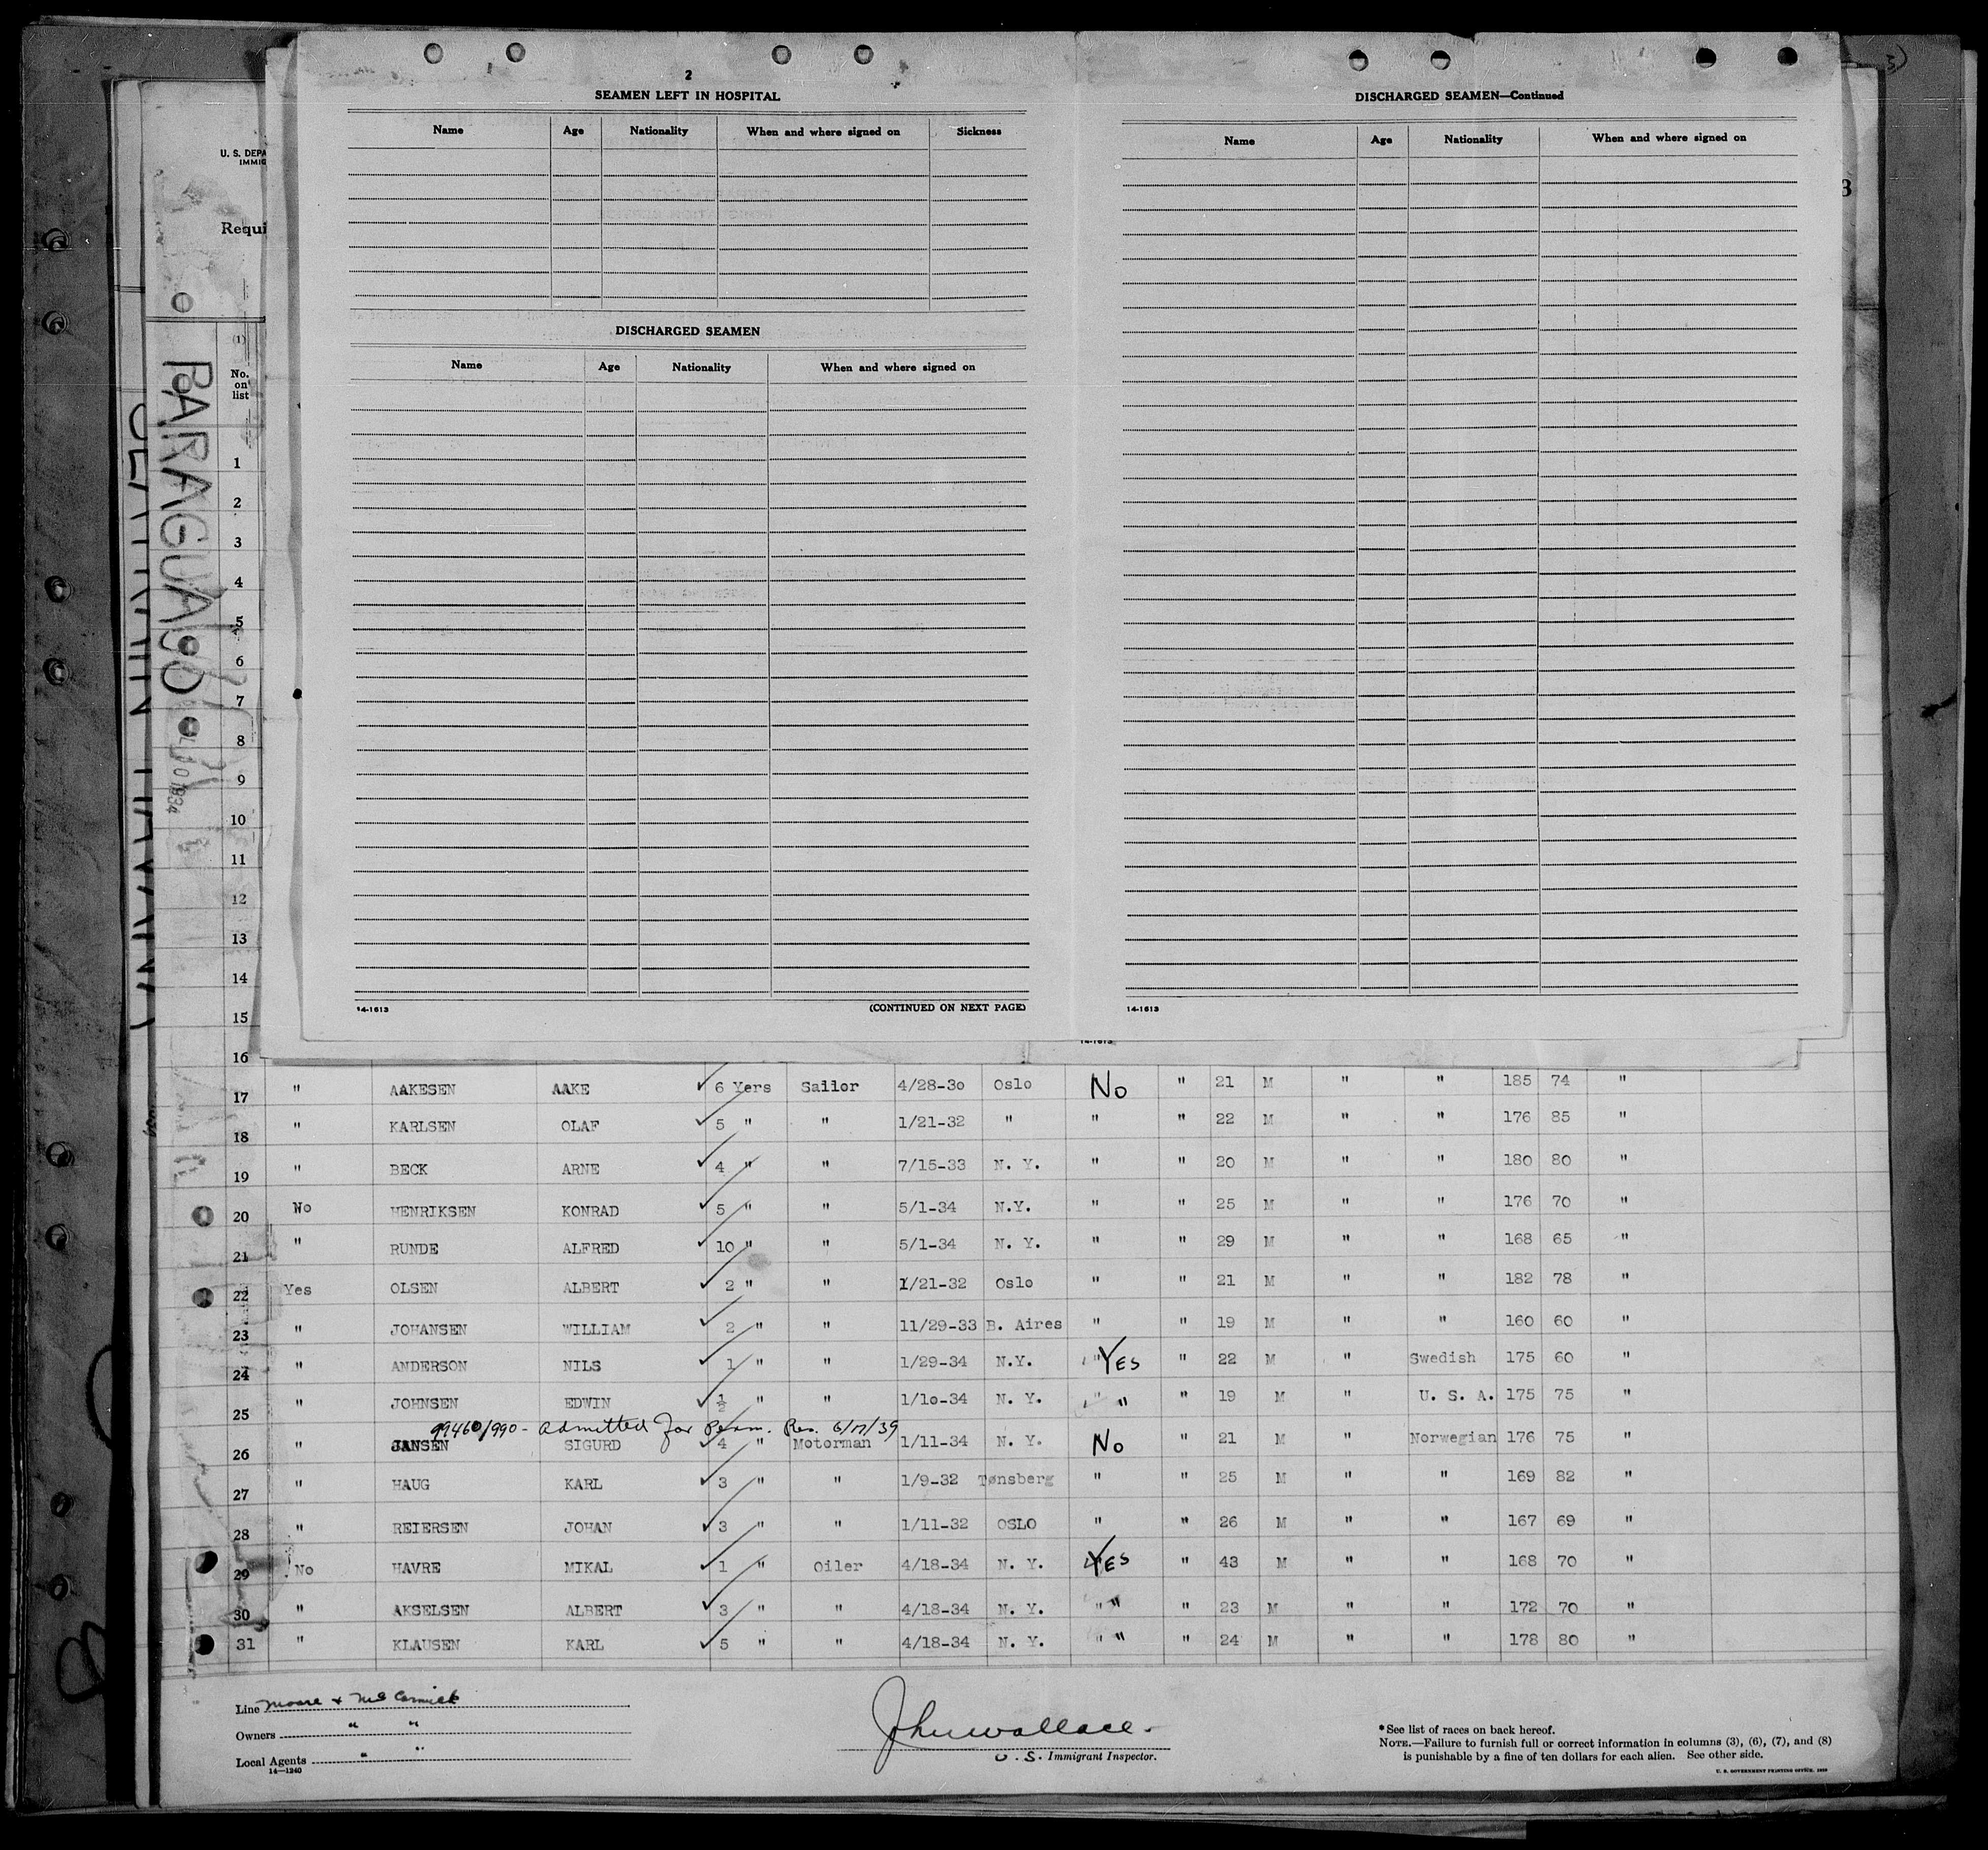 2
SEAMEN LEFT IN HOSPITAL
Name Age Nationality When and where signed on Sickness
DISCHARGED SEAMEN
Name Age Nationality When and where signed on
14-1613 (CONTINUED ON NEXT PAGE)
DISCHARGED SEAMEN—Continued
Name Age Nationality When and where signed on
14-1613
14-1613
3)
U. S. DEPA
IMMIG
Requi
3
PARAGUAYO
1934
(1)
No.
on
list
1
2
3
4
5
6
7
8
9
10
11
12
13
14
15
16
17 " AAKESEN AAKE 6 Yers Sailor 4/28-30 Oslo No " 21 M " " 185 74 "
18 " KARLSEN OLAF 5 " " 1/21-32 " " " 22 M " " 176 85 "
19 " BECK ARNE 4 " " 7/15-33 N. Y. " " 20 M " " 180 80 "
20 No HENRIKSEN KONRAD 5 " " 5/1-34 N.Y. " " 25 M " " 176 70 "
21 " RUNDE ALFRED 10 " " 5/1-34 N. Y. " " 29 M " " 168 65 "
22 Yes OLSEN ALBERT 2 " " 1/21-32 Oslo " " 21 M " " 182 78 "
23 " JOHANSEN WILLIAM 2 " " 11/29-33 B. Aires " " 19 M " " 160 60 "
24 " ANDERSON NILS 1 " " 1/29-34 N.Y. " YES " 22 M " Swedish 175 60 "
25 " JOHNSEN EDWIN ½ " " 1/10-34 N. Y. " " " 19 M " U. S. A. 175 75 "
99460/990 - Admitted for Perm. Res. 6/17/39
26 " JANSEN SIGURD 4 " Motorman 1/11-34 N. Y. No " 21 M " Norwegian 176 75 "
27 " HAUG KARL 3 " " 1/9-32 Tønsberg " " 25 M " " 169 82 "
28 " REIERSEN JOHAN 3 " " 1/11-32 OSLO " " 26 M " " 167 69 "
29 No HAVRE MIKAL 1 " Oiler 4/18-34 N. Y. YES " 43 M " " 168 70 "
30 " AKSELSEN ALBERT 3 " " 4/18-34 N. Y. " " " 23 M " " 172 70 "
31 " KLAUSEN KARL 5 " " 4/18-34 N. Y. " " " 24 M " " 178 80 "
Line Moore & McCormick
Owners " "
Local Agents " "
14—1240
John Wallace
U. S. Immigrant Inspector.
*See list of races on back hereof.
NOTE.—Failure to furnish full or correct information in columns (3), (6), (7), and (8)
is punishable by a fine of ten dollars for each alien. See other side.